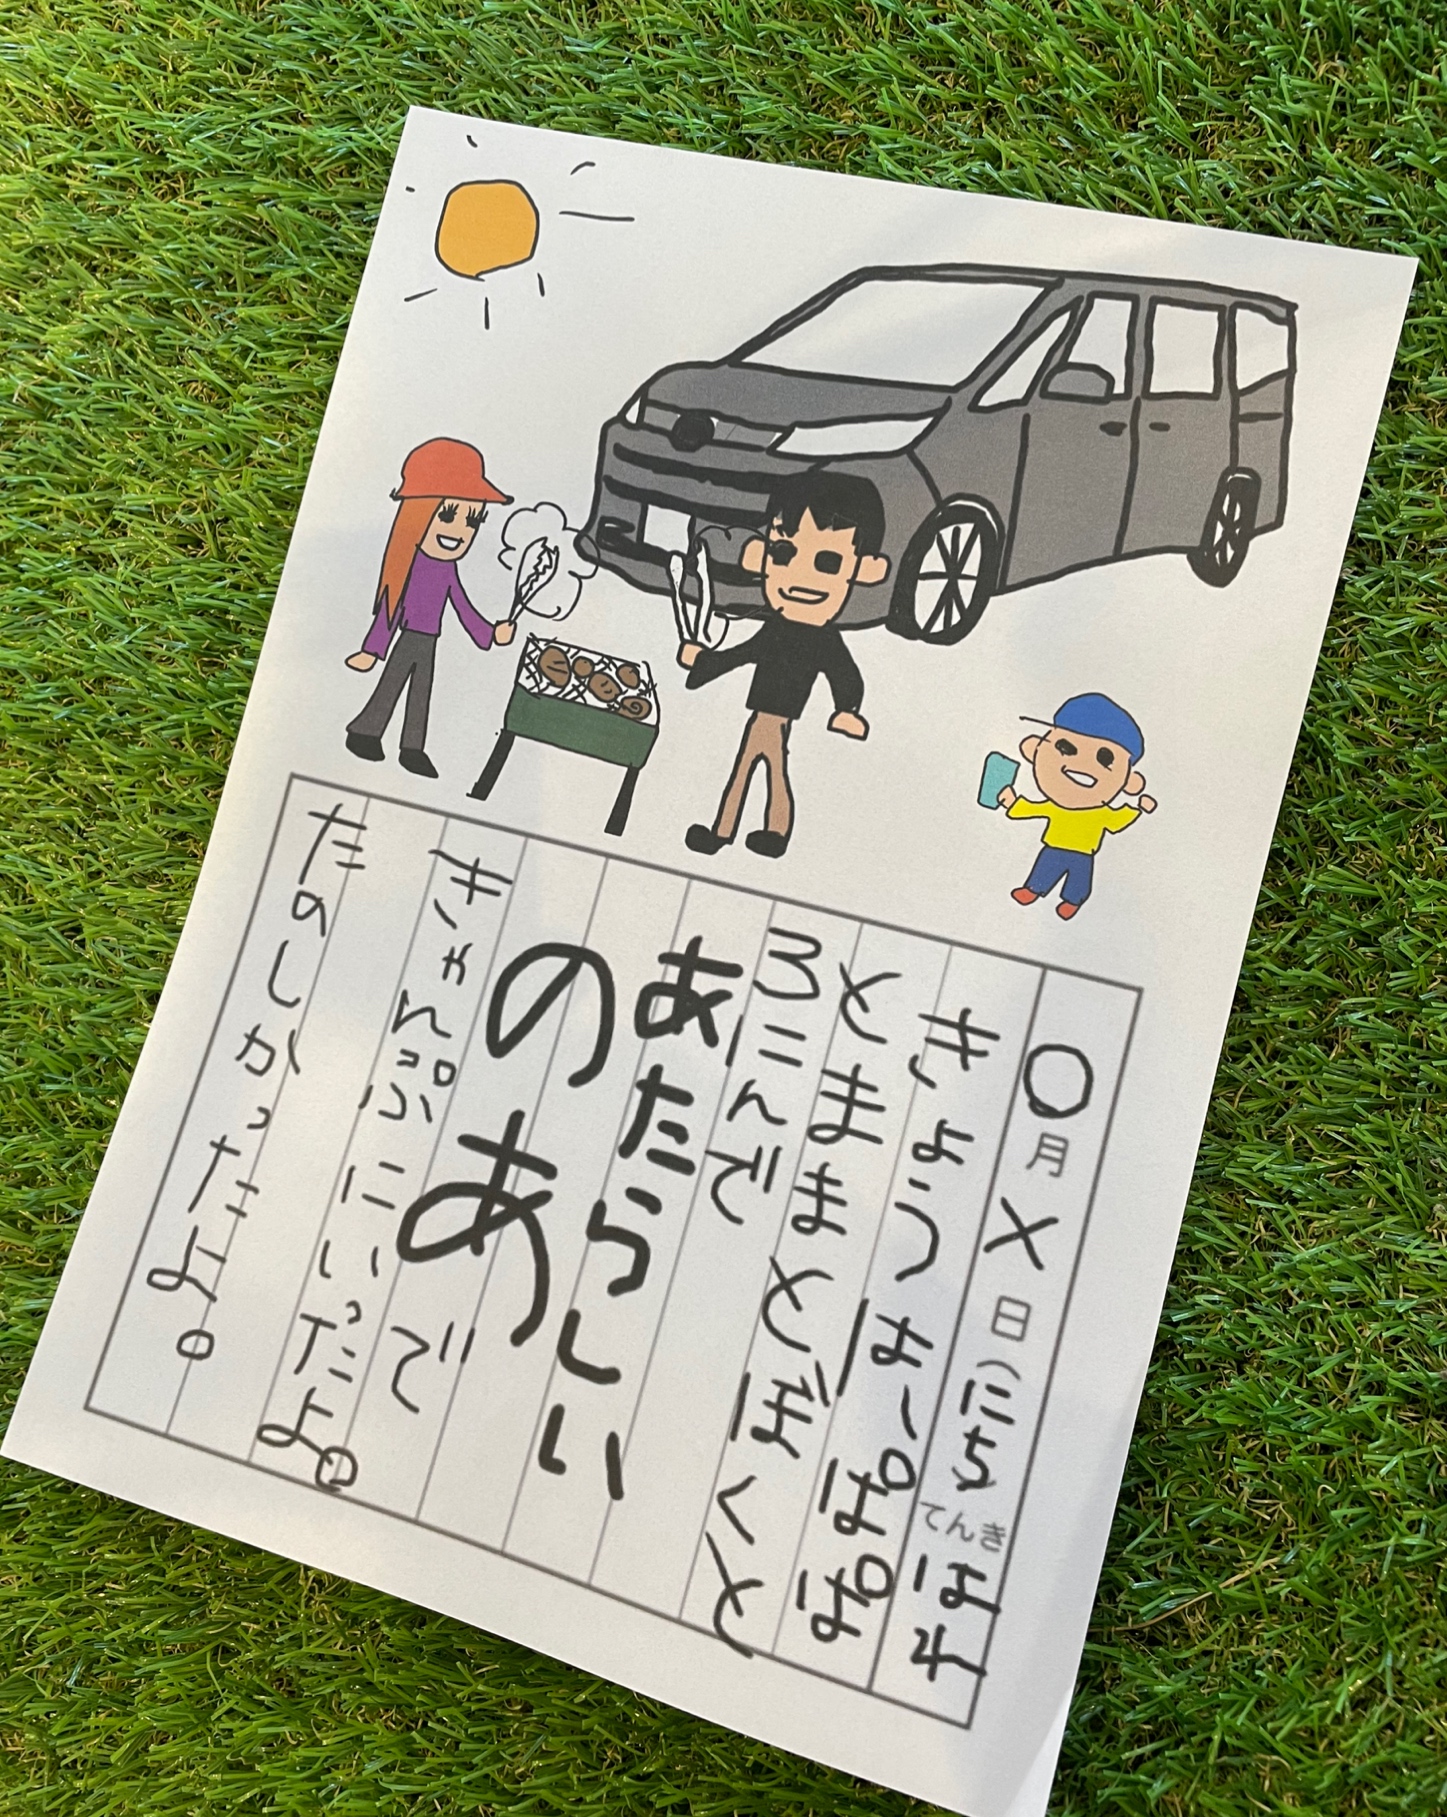 〇月×日(にち てんき はれ
きょうは、ぱぱ
とままとぼくと
3にんで
あたらしい
のあで
きゃんぷにいっだよ。
たのしかったよ。